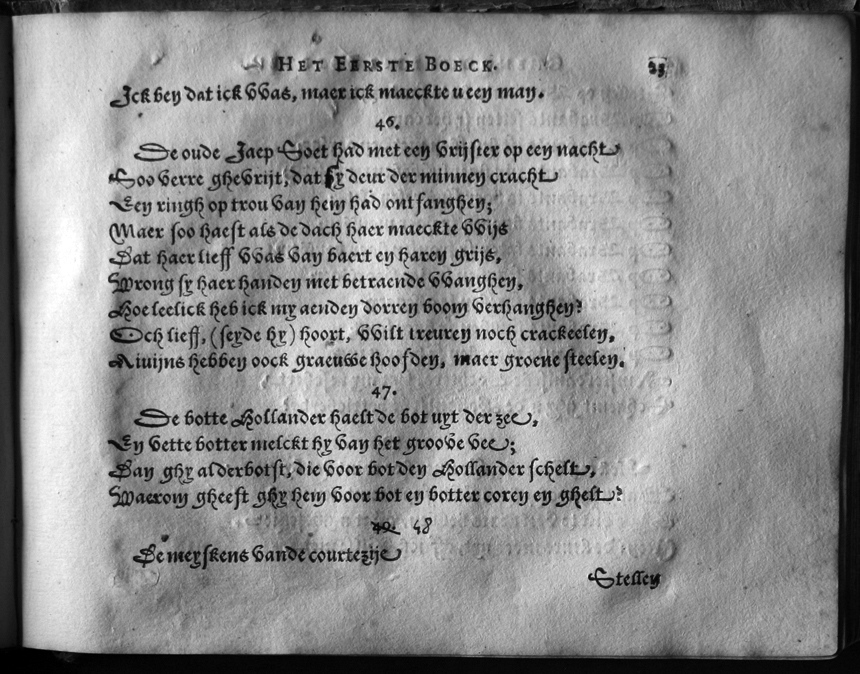 HET EERSTE BOECK. 25
Ick ben dat ick VVas, maer ick maeckte u een man.
46.
De oude Jaep Soet had met een Vrijster op een nacht
Soo Verre gheVrijt, dat sy deur der minnen cracht
Een ringh op trou Van hem had ontfanghen;
Maer soo haest als de dach haer maeckte VVijs
Dat haer lieff VVas Van baert en haren grijs,
Wrong sy haer handen met betraende VVanghen,
Hoe leelick heb ick my aenden dorren boom Verhanghen?
Och lieff, (seyde hy) hoort, VVilt treuren noch crackeelen,
Aiuijns hebben oock graeuVVe hoofden, maer groene steelen.
47.
De botte Hollander haelt de bot uyt der zee,
En Vette botter melckt hy Van het grooVe Vee;
Dan ghy alderbotst, die Voor bot den Hollander schelt,
Waerom gheeft ghy hem Voor bot en botter coren en ghelt?
49. 48
De meyskens Vande courtezije
Stellen